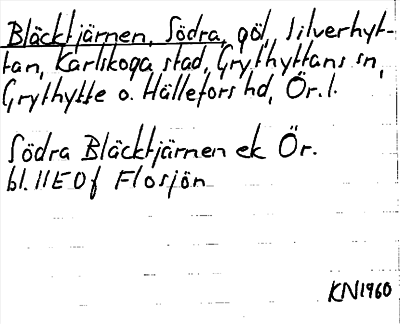 Bläcktjärnen, Södra, göl, Silverhyt-
tan, Karlskoga stad, Grythyttans sn,
Grythytte o. Hällefors hd, Ör. l.
Södra Bläcktjärnen ek Ör.
bl. 11E 0f Flosjön
KN1960